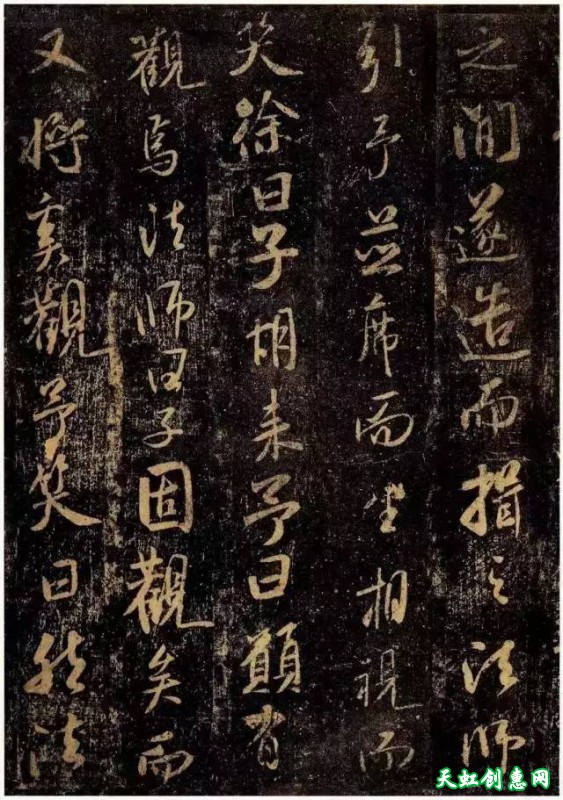 之間遂造而揖之法師
引予並席而坐相視而
笑徐曰子胡来予曰願有
觀焉法師曰子固觀矣而
又將奚觀予笑曰然法
天虹创惠网